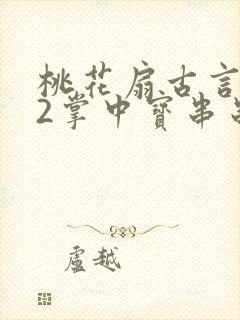 桃花扇古言
2掌中寳串
盧越